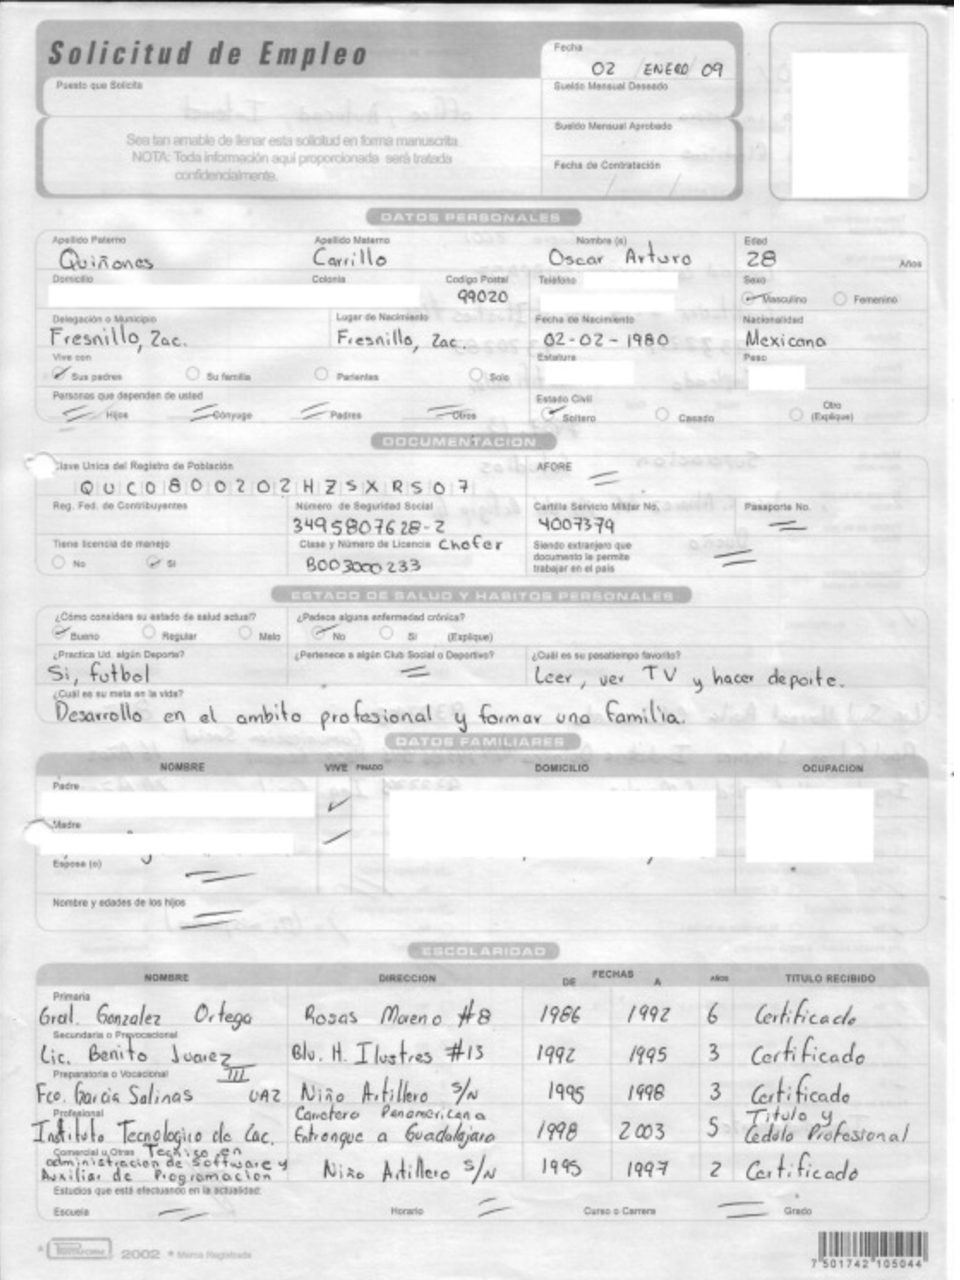 Solicitud de Empleo
Fecha
02 ENERO 09
Puesto que Solicita
Sueldo Mensual Deseado
Sea tan amable de llenar esta solicitud en forma manuscrita.
NOTA: Toda información aquí proporcionada será tratada
confidencialmente.
Sueldo Mensual Aprobado
Fecha de Contratación
DATOS PERSONALES
Apellido Paterno Apellido Materno Nombre (s) Edad
Quiñones Carrillo Oscar Arturo 28 Años
Domicilio Colonia Codigo Postal Teléfono Sexo
99020 Masculino Femenino
Delegación o Municipio Lugar de Nacimiento Fecha de Nacimiento Nacionalidad
Fresnillo, Zac. Fresnillo, Zac. 02-02-1980 Mexicana
Vive con Estatura Peso
Sus padres Su familia Parientes Solo
Personas que dependen de usted Estado Civil
Hijos Cónyuge Padres Otros Soltero Casado Otro (Explique)
DOCUMENTACION
Clave Unica del Registro de Población AFORE
QUCO800202HZSXRS07
Reg. Fed. de Contribuyentes Número de Seguridad Social Cartilla Servicio Militar No. Pasaporte No.
3495807628-2 4007379
Tiene licencia de manejo Clase y Número de Licencia Chofer Siendo extranjero que
documento le permite
trabajar en el país
No Si B003000233
ESTADO DE SALUD Y HABITOS PERSONALES
¿Cómo considera su estado de salud actual? ¿Padece alguna enfermedad crónica?
Bueno Regular Malo No Si (Explique)
¿Practica Ud. algún Deporte? ¿Pertenece a algún Club Social o Deportivo? ¿Cuál es su pasatiempo favorito?
Si, futbol Leer, ver TV y hacer deporte.
¿Cuál es su meta en la vida?
Desarrollo en el ambito profesional y formar una familia.
DATOS FAMILIARES
NOMBRE VIVE FINADO DOMICILIO OCUPACION
Padre
Madre
Esposa (o)
Nombre y edades de los hijos
ESCOLARIDAD
NOMBRE DIRECCION FECHAS DE A AÑOS TITULO RECIBIDO
Primaria
Gral. Gonzalez Ortega Rosas Moreno #8 1986 1992 6 Certificado
Secundaria o Prevocacional
Lic. Benito Juarez III Blv. H. Ilustres #13 1992 1995 3 Certificado
Preparatoria o Vocacional
Fco. Garcia Salinas UAZ Niño Artillero S/N 1995 1998 3 Certificado
Profesional
Instituto Tecnologico de Zac. Carretera Panamericana Entronque a Guadalajara 1998 2003 5 Titulo y Cedula Profesional
Comercial u Otras
Tecnico en administracion de Software y Auxiliar de Programacion Niño Artillero S/N 1995 1997 2 Certificado
Estudios que está efectuando en la actualidad:
Escuela Horario Curso o Carrera Grado
2002 * Marca Registrada
7 501742 105044